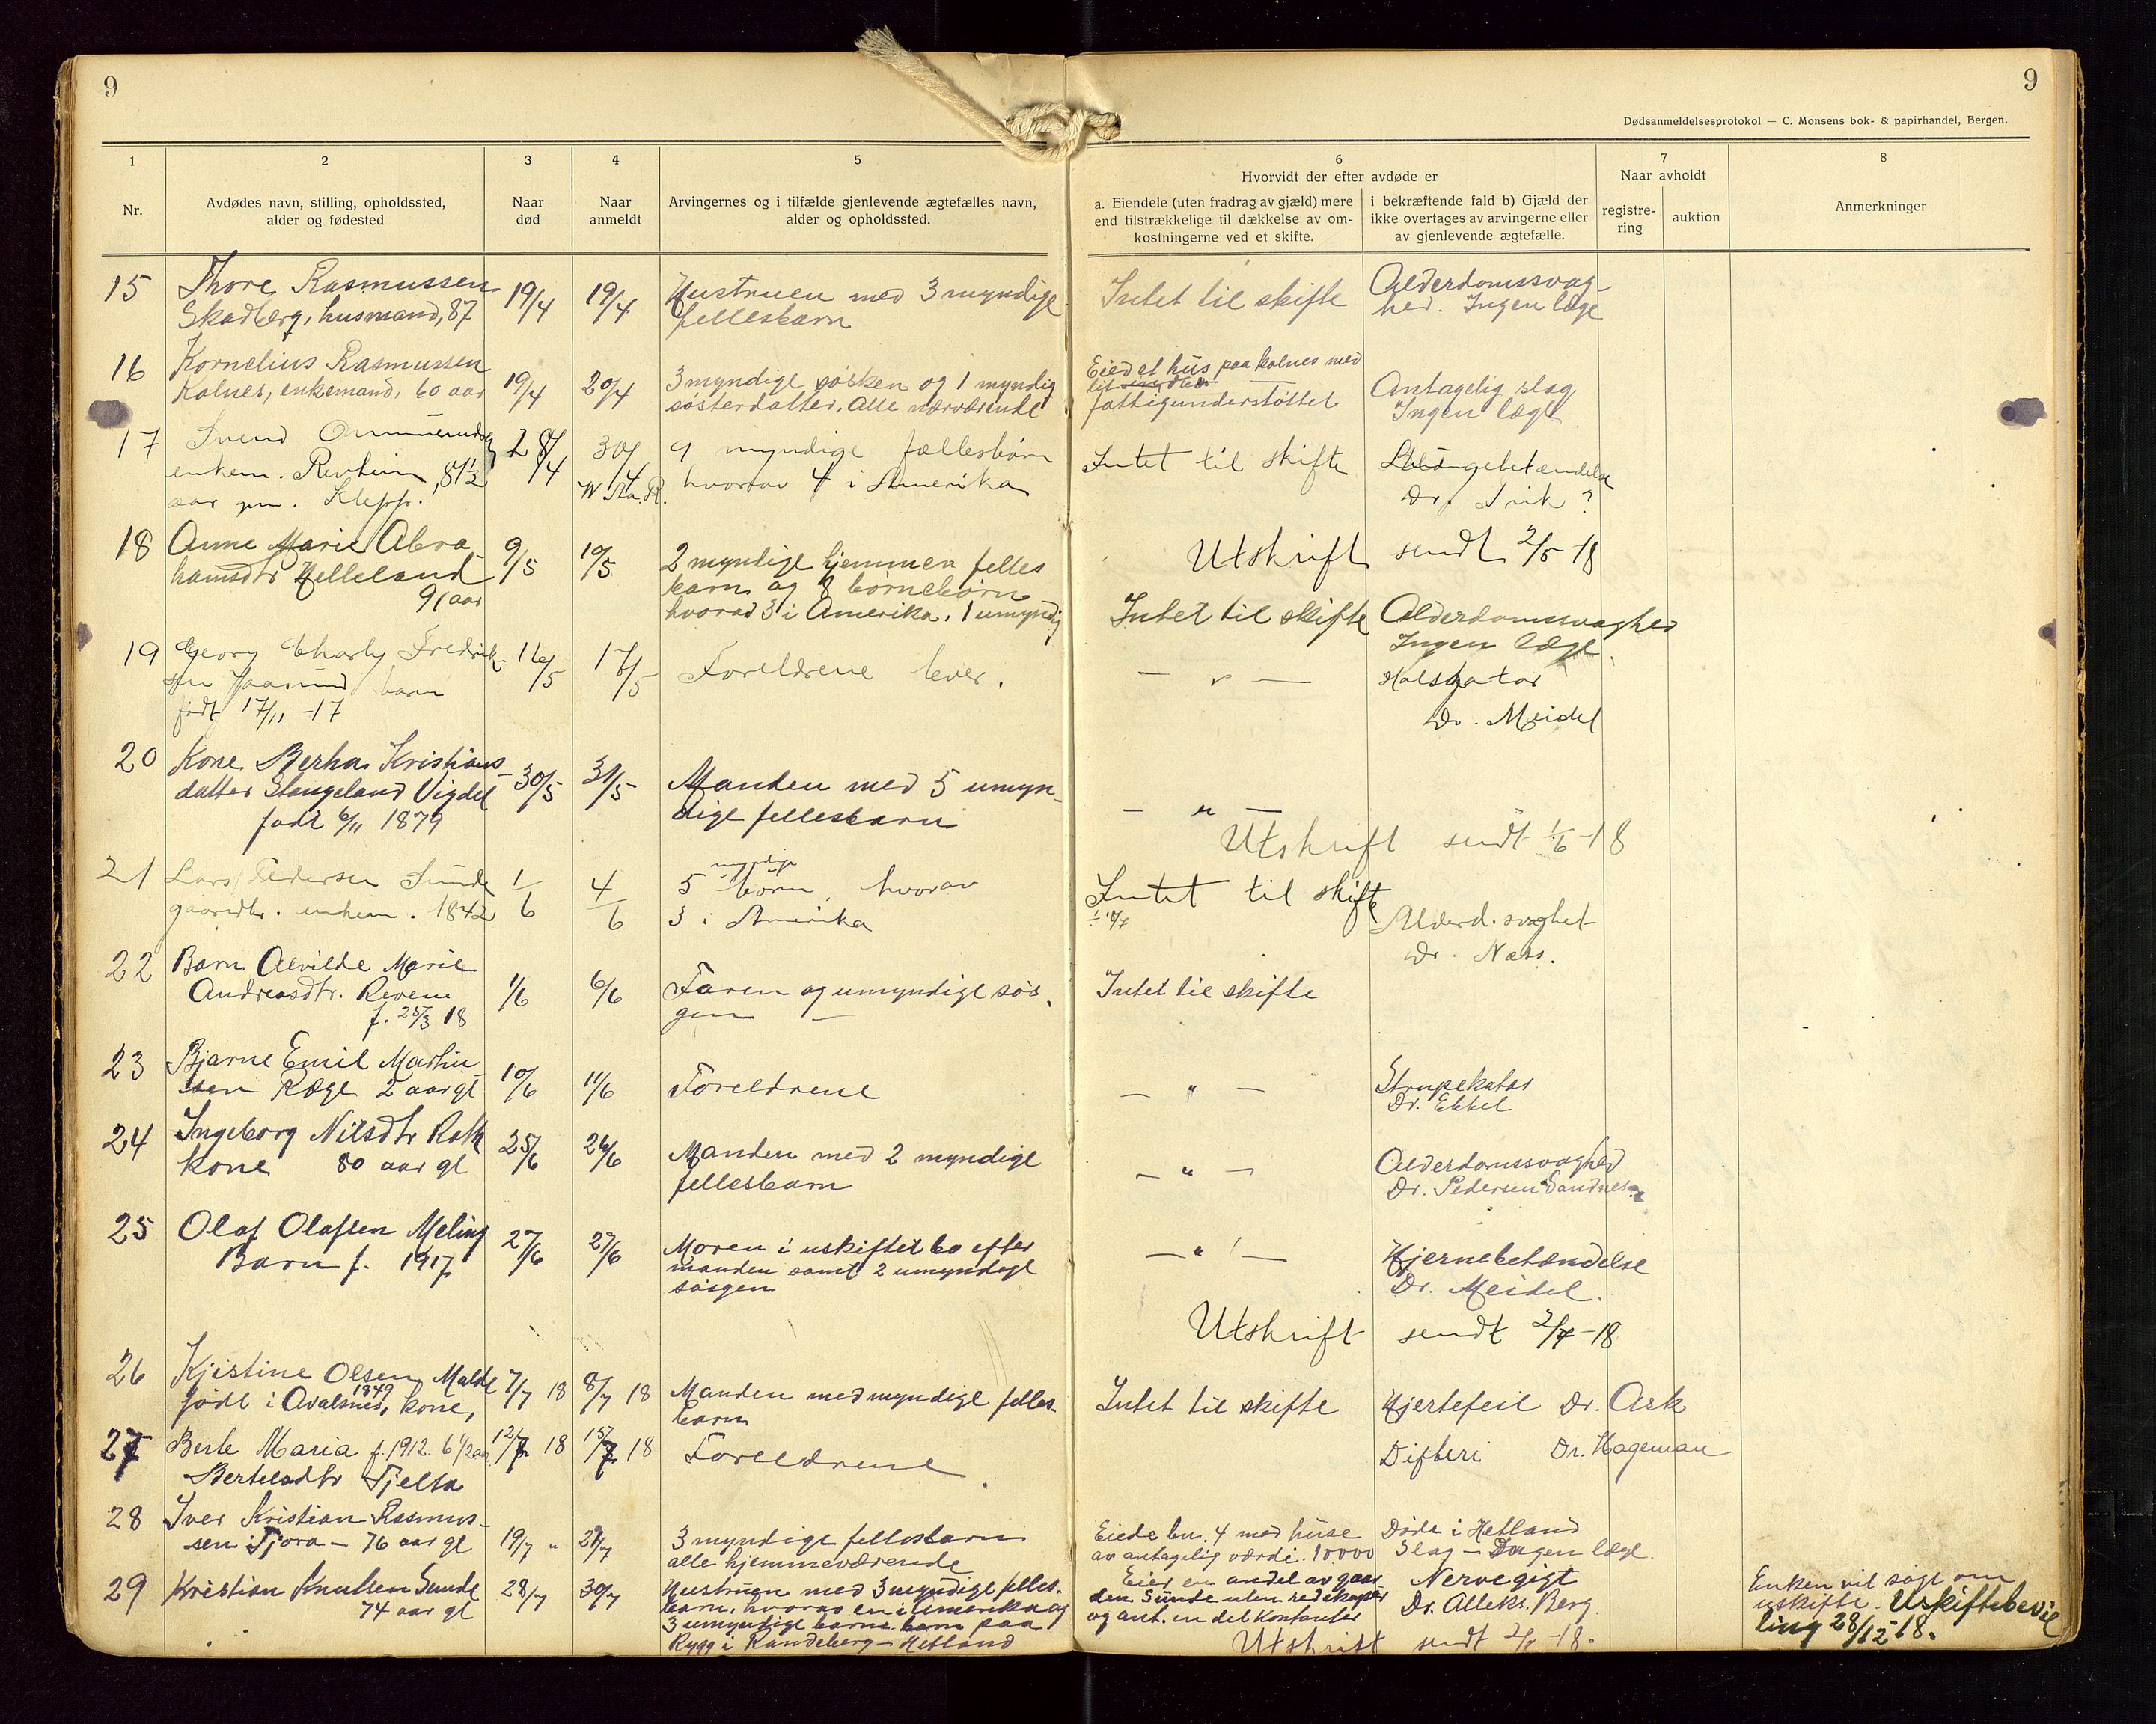 9
9
Dødsanmeldelsesprotokol — C. Monsens bok- & papirhandel, Bergen.
1
2
3
4
5
6
7
8
Nr.
Avdødes navn, stilling, opholdssted,
alder og fødested
Naar
død
Naar
anmeldt
Arvingernes og i tilfælde gjenlevende ægtefælles navn,
alder og opholdssted.
Hvorvidt der efter avdøde er
a. Eiendele (uten fradrag av gjæld) mere
end tilstrækkelige til dækkelse av om-
kostningerne ved et skifte.
i bekræftende fald b) Gjæld der
ikke overtages av arvingerne eller
av gjenlevende ægtefælle.
Naar avholdt
registre-
ring
auktion
Anmerkninger
15
Thore Rasmussen
Skadberg, husmand, 87
19/4
19/4
Hustruen med 3 myndige
fellesbarn
Intet til skifte
Alderdomssvag-
hed. Ingen læge
16
Kornelius Rasmussen
Kolnes, enkemand, 60 aar
19/4
20/4
3 myndige søsken og 1 myndig
søsterdatter. Alle nærværende
Eied et hus paa Kolnes med
fattigunderstøttet
Antagelig slag
Ingen læge
17
Svend
enkem. 81 1/2
aar Klepp.
28/4
30/4
9 myndige fællesbørn
hvorav 4 i Amerika
Intet til skifte
Dr.
18
Anne Marie Abra-
hamsdtr Helleland
91 aar
9/5
10/5
2 myndige hjemmen felles
barn og 8 børnebørn
hvorad 3 i Amerika. 1 umyndig
Utskrift sendt 2/5 18
Intet til skifte
Alderdomssvaghed
Ingen læge
19
Georg Charly Fredrik-
sen barn
født 17/11 -17
16/5
17/5
Foreldrene lever.
— " —
Halskatar
Dr. Meidel
20
Kone Bertha Kristians-
datter Stangeland Vigdel
født 6/11 1879
30/5
31/5
Manden med 5 umyn-
dige fellesbarn
— " —
Utskrift sendt 1/6 -18
21
Lars Pedersen Sunde
enkem. 1842
1/6
4/6
myndige
5 børn, hvorav
3 i Amerika
Intet til skifte
Alderd. svaghet
Dr. Næss.
22
Barn Alvilde Marie
Andreasdtr. Reveim
f. 25/3 18
1/6
6/6
Faren og umyndige søs-
gen —
Intet til skifte
23
Bjarne Emil Martin-
sen Ræge 2 aar gl
10/6
11/6
Foreldrene
— " —
Strupekatar
Dr. Ebbel
24
Ingeborg Nilsdtr Rott
kone 80 aar gl
25/6
26/6
Manden med 2 myndige
fellesbarn
— " —
Alderdomssvaghed
Dr. Pedersen Sandnes
25
Olaf Olafsen Meling
Barn f. 1917
27/6
27/6
Moren i uskiftet bo efter
manden samt 2 umyndige
søsgen
— " —
Hjernebetændelse
Dr. Meidel.
Utskrift sendt 2/7 -18
26
Kjistine Olsen Malde
1849
født i Avalsnes, kone,
7/7 18
8/7 18
Manden med myndige felles-
barn
Intet til skifte
Hjertefeil Dr. Ask
27
Berte Maria f. 1912. 6 1/2 aar
Bertelsdtr Tjelta
12/7 18
15/7 18
Foreldrene
Difteri Dr. Hageman
28
Iver Kristian Rasmus-
sen Tjora — 76 aar gl
19/7 "
21/7
3 myndige fellesbarn
alle hjemmeværende
Eiede bn. 4 med huse
av antagelig værdi. 10000
Døde i Hetland
Slag — Ingen læge.
29
Kristian Knutsen Sunde
74 aar gl
28/7
30/7
Hustruen med 3 myndige felles-
barn, hvorav en i Amerika og
3 umyndige barne barn paa
Rygg i Randeberg — Hetland
Eier en andel av gaar-
den Sunde uten redskaper
og ant. en del kontanter
Nervegigt
Dr. Alleks. Berg.
Utskrift sendt -18.
Enken vil søge om
uskifte. Uskiftebevil
ling 28/12 18.